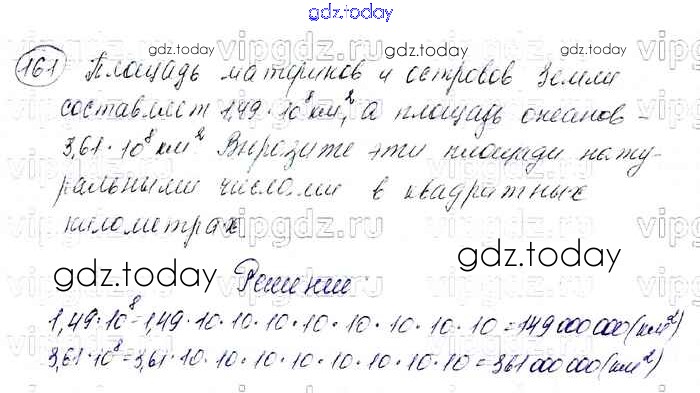 gdz.today
161 Площадь материков и островов Земли
составляет 1,49·10⁸ км², а площадь океанов -
3,61·10⁸ км² Выразите эти площади нату-
ральными числами в квадратных
километрах
gdz.today gdz.today
Решение:
1,49·10⁸=1,49·10·10·10·10·10·10·10·10=149 000 000(км²)
3,61·10⁸=3,61·10·10·10·10·10·10·10·10=361 000 000(км²)